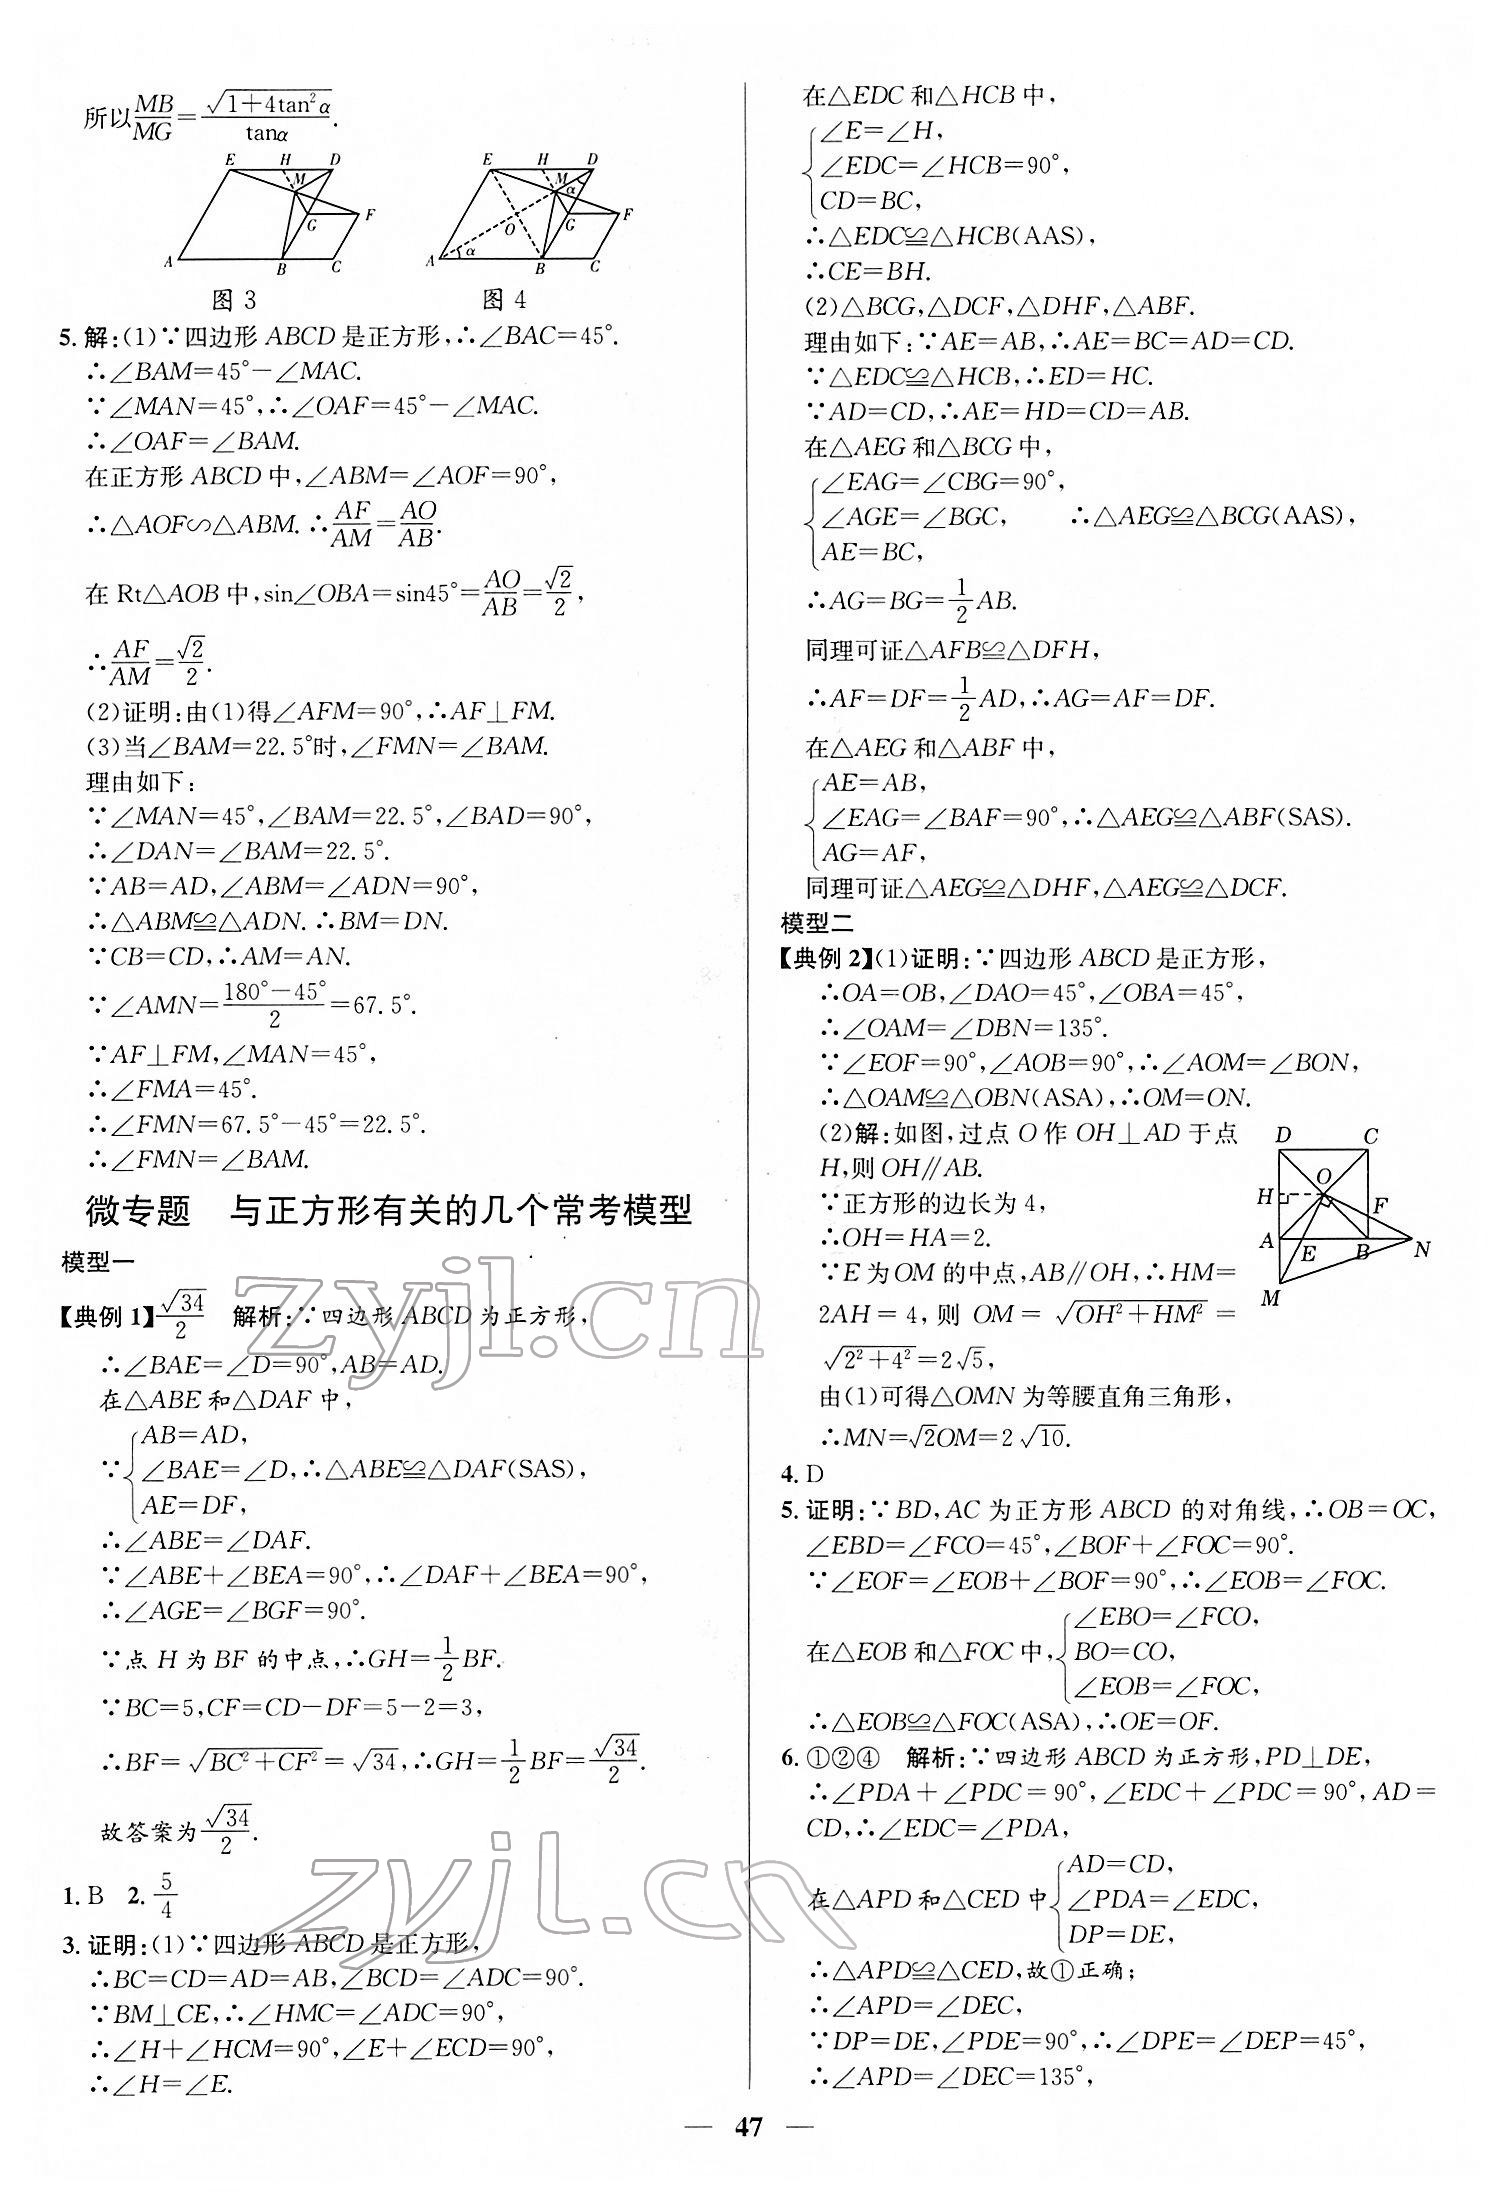 所以MB/MG=√(1+4tan²α)/tanα.
E H D M G F A B C
E H D M α G F O A α B C
图 3 图 4
5. 解:(1)∵四边形 ABCD 是正方形,∴∠BAC=45°.
∴∠BAM=45°-∠MAC.
∵∠MAN=45°,∴∠OAF=45°-∠MAC.
∴∠OAF=∠BAM.
在正方形 ABCD 中,∠ABM=∠AOF=90°,
∴△AOF∽△ABM. ∴AF/AM=AO/AB.
在 Rt△AOB 中,sin∠OBA=sin45°=AO/AB=√2/2,
∴AF/AM=√2/2.
(2)证明:由(1)得∠AFM=90°,∴AF⊥FM.
(3)当∠BAM=22.5°时,∠FMN=∠BAM.
理由如下:
∵∠MAN=45°,∠BAM=22.5°,∠BAD=90°,
∴∠DAN=∠BAM=22.5°.
∵AB=AD,∠ABM=∠ADN=90°,
∴△ABM≌△ADN. ∴BM=DN.
∵CB=CD,∴AM=AN.
∵∠AMN=(180°-45°)/2=67.5°.
∵AF⊥FM,∠MAN=45°,
∴∠FMA=45°.
∴∠FMN=67.5°-45°=22.5°.
∴∠FMN=∠BAM.
微专题 与正方形有关的几个常考模型
模型一
【典例1】√34/2 解析:∵四边形 ABCD 为正方形,
∴∠BAE=∠D=90°,AB=AD.
在△ABE 和△DAF 中,
AB=AD,
∵{∠BAE=∠D,∴△ABE≌△DAF(SAS),
AE=DF,
∴∠ABE=∠DAF.
∵∠ABE+∠BEA=90°,∴∠DAF+∠BEA=90°,
∴∠AGE=∠BGF=90°.
∵点 H 为 BF 的中点,∴GH=1/2BF.
∵BC=5,CF=CD-DF=5-2=3,
∴BF=√(BC²+CF²)=√34,∴GH=1/2BF=√34/2.
故答案为√34/2.
1. B 2. 5/4
3. 证明:(1)∵四边形 ABCD 是正方形,
∴BC=CD=AD=AB,∠BCD=∠ADC=90°.
∵BM⊥CE,∴∠HMC=∠ADC=90°,
∴∠H+∠HCM=90°,∠E+∠ECD=90°,
∴∠H=∠E.
在△EDC 和△HCB 中,
∠E=∠H,
{∠EDC=∠HCB=90°,
CD=BC,
∴△EDC≌△HCB(AAS),
∴CE=BH.
(2)△BCG,△DCF,△DHF,△ABF.
理由如下:∵AE=AB,∴AE=BC=AD=CD.
∵△EDC≌△HCB,∴ED=HC.
∵AD=CD,∴AE=HD=CD=AB.
在△AEG 和△BCG 中,
∠EAG=∠CBG=90°,
{∠AGE=∠BGC, ∴△AEG≌△BCG(AAS),
AE=BC,
∴AG=BG=1/2AB.
同理可证△AFB≌△DFH,
∴AF=DF=1/2AD,∴AG=AF=DF.
在△AEG 和△ABF 中,
AE=AB,
{∠EAG=∠BAF=90°,∴△AEG≌△ABF(SAS).
AG=AF,
同理可证△AEG≌△DHF,△AEG≌△DCF.
模型二
【典例2】(1)证明:∵四边形 ABCD 是正方形,
∴OA=OB,∠DAO=45°,∠OBA=45°,
∴∠OAM=∠DBN=135°.
∵∠EOF=90°,∠AOB=90°,∴∠AOM=∠BON,
∴△OAM≌△OBN(ASA),∴OM=ON.
(2)解:如图,过点 O 作 OH⊥AD 于点
H,则 OH∥AB.
∵正方形的边长为4,
∴OH=HA=2.
∵E 为 OM 的中点,AB∥OH,∴HM=
2AH=4,则 OM=√(OH²+HM²)=
√(2²+4²)=2√5,
由(1)可得△OMN 为等腰直角三角形,
∴MN=√2OM=2√10.
D C O H F A E B N M
4. D
5. 证明:∵BD,AC 为正方形 ABCD 的对角线,∴OB=OC,
∠EBD=∠FCO=45°,∠BOF+∠FOC=90°.
∵∠EOF=∠EOB+∠BOF=90°,∴∠EOB=∠FOC.
∠EBO=∠FCO,
在△EOB 和△FOC 中,{BO=CO,
∠EOB=∠FOC,
∴△EOB≌△FOC(ASA),∴OE=OF.
6. ①②④ 解析:∵四边形 ABCD 为正方形,PD⊥DE,
∴∠PDA+∠PDC=90°,∠EDC+∠PDC=90°,AD=
CD,∴∠EDC=∠PDA,
AD=CD,
在△APD 和△CED 中{∠PDA=∠EDC,
DP=DE,
∴△APD≌△CED,故①正确;
∴∠APD=∠DEC,
∵DP=DE,∠PDE=90°,∴∠DPE=∠DEP=45°,
∴∠APD=∠DEC=135°,
— 47 —
zyjl.cn
zyjl.cn